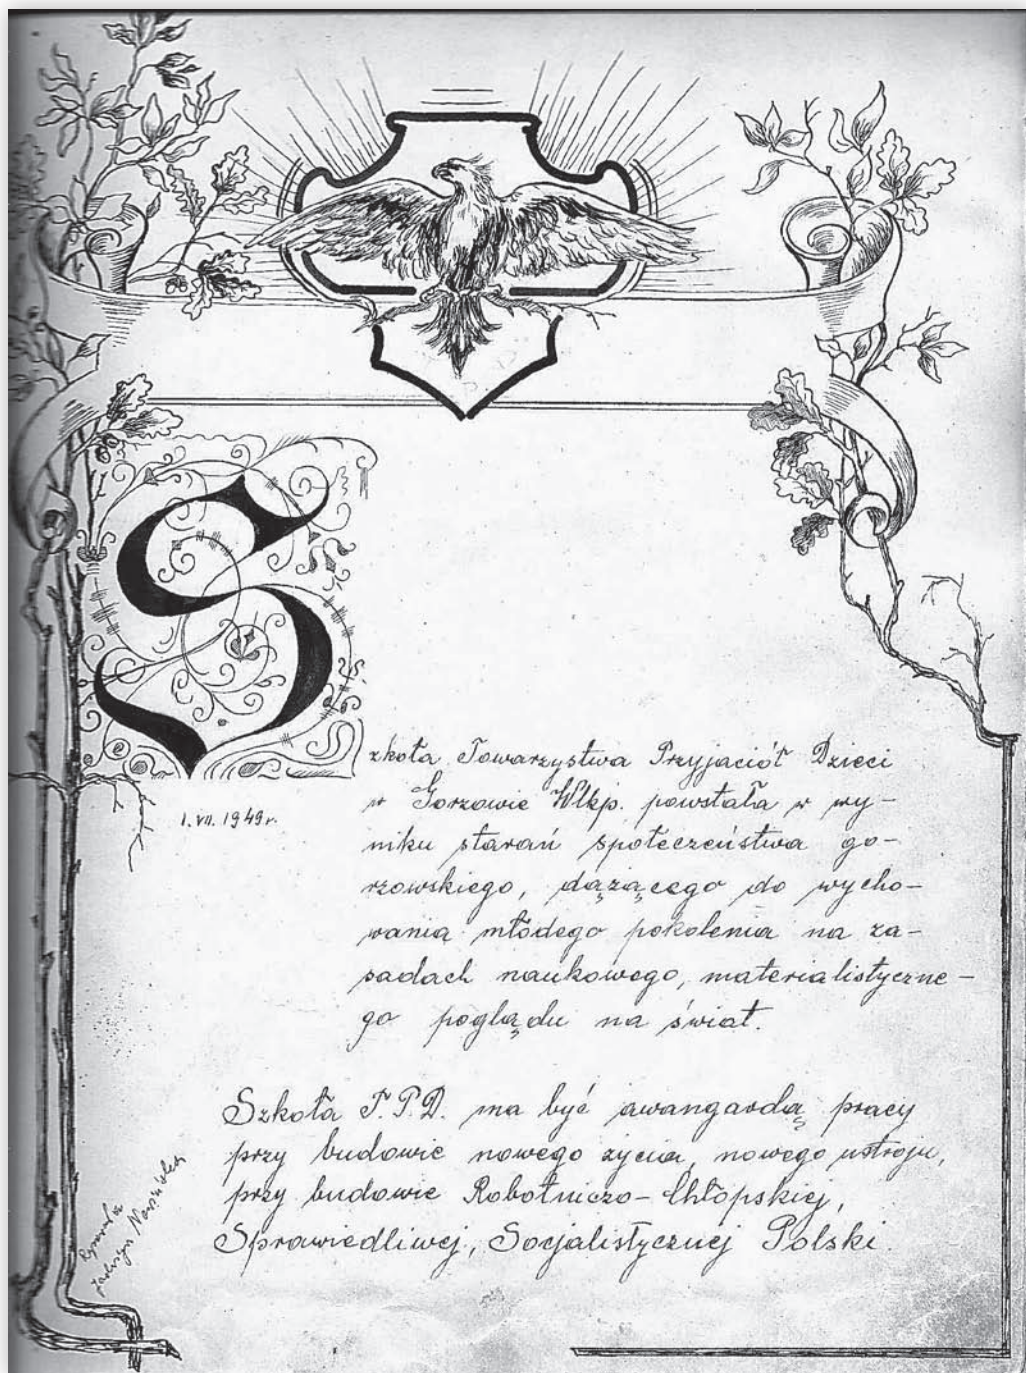 Szkoła Towarzystwa Przyjaciół Dzieci
w Gorzowie Wlkp. powstała w wy-
1. VII. 1949 r.
niku starań społeczeństwa go-
rzowskiego, dążącego do wycho-
wania młodego pokolenia na za-
sadach naukowego, materialistyczne-
go poglądu na świat.
Szkoła T.P.D. ma być awangardą pracy
przy budowie nowego życia, nowego ustroju,
przy budowie Robotniczo-Chłopskiej,
Sprawiedliwej, Socjalistycznej Polski.
Jadwiga